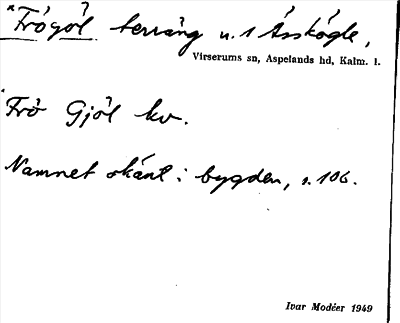 "Frögöl terräng u. 1 Åsskögle,
Virserums sn, Aspelands hd, Kalm. l.
"Frö Gjöl kv.
Namnet okänt i bygden, s. 106.
Ivar Modéer 1949